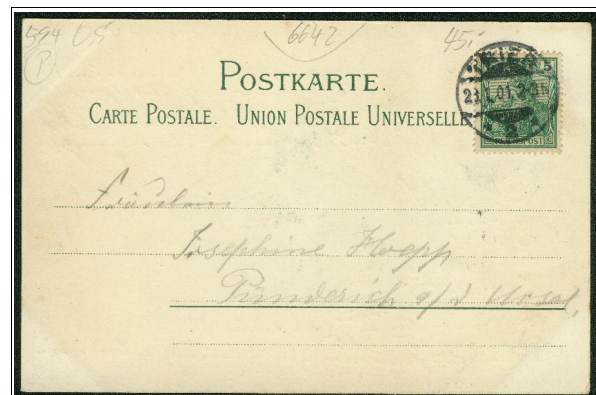 594 DS 6642 45.-
P
POSTKARTE.
CARTE POSTALE. UNION POSTALE UNIVERSELLE
TRIER
23. 01. 2-3N
* 2
REICHSPOST
Fräulein
Josephine Hoepp
Pünderich a/d Mosel,